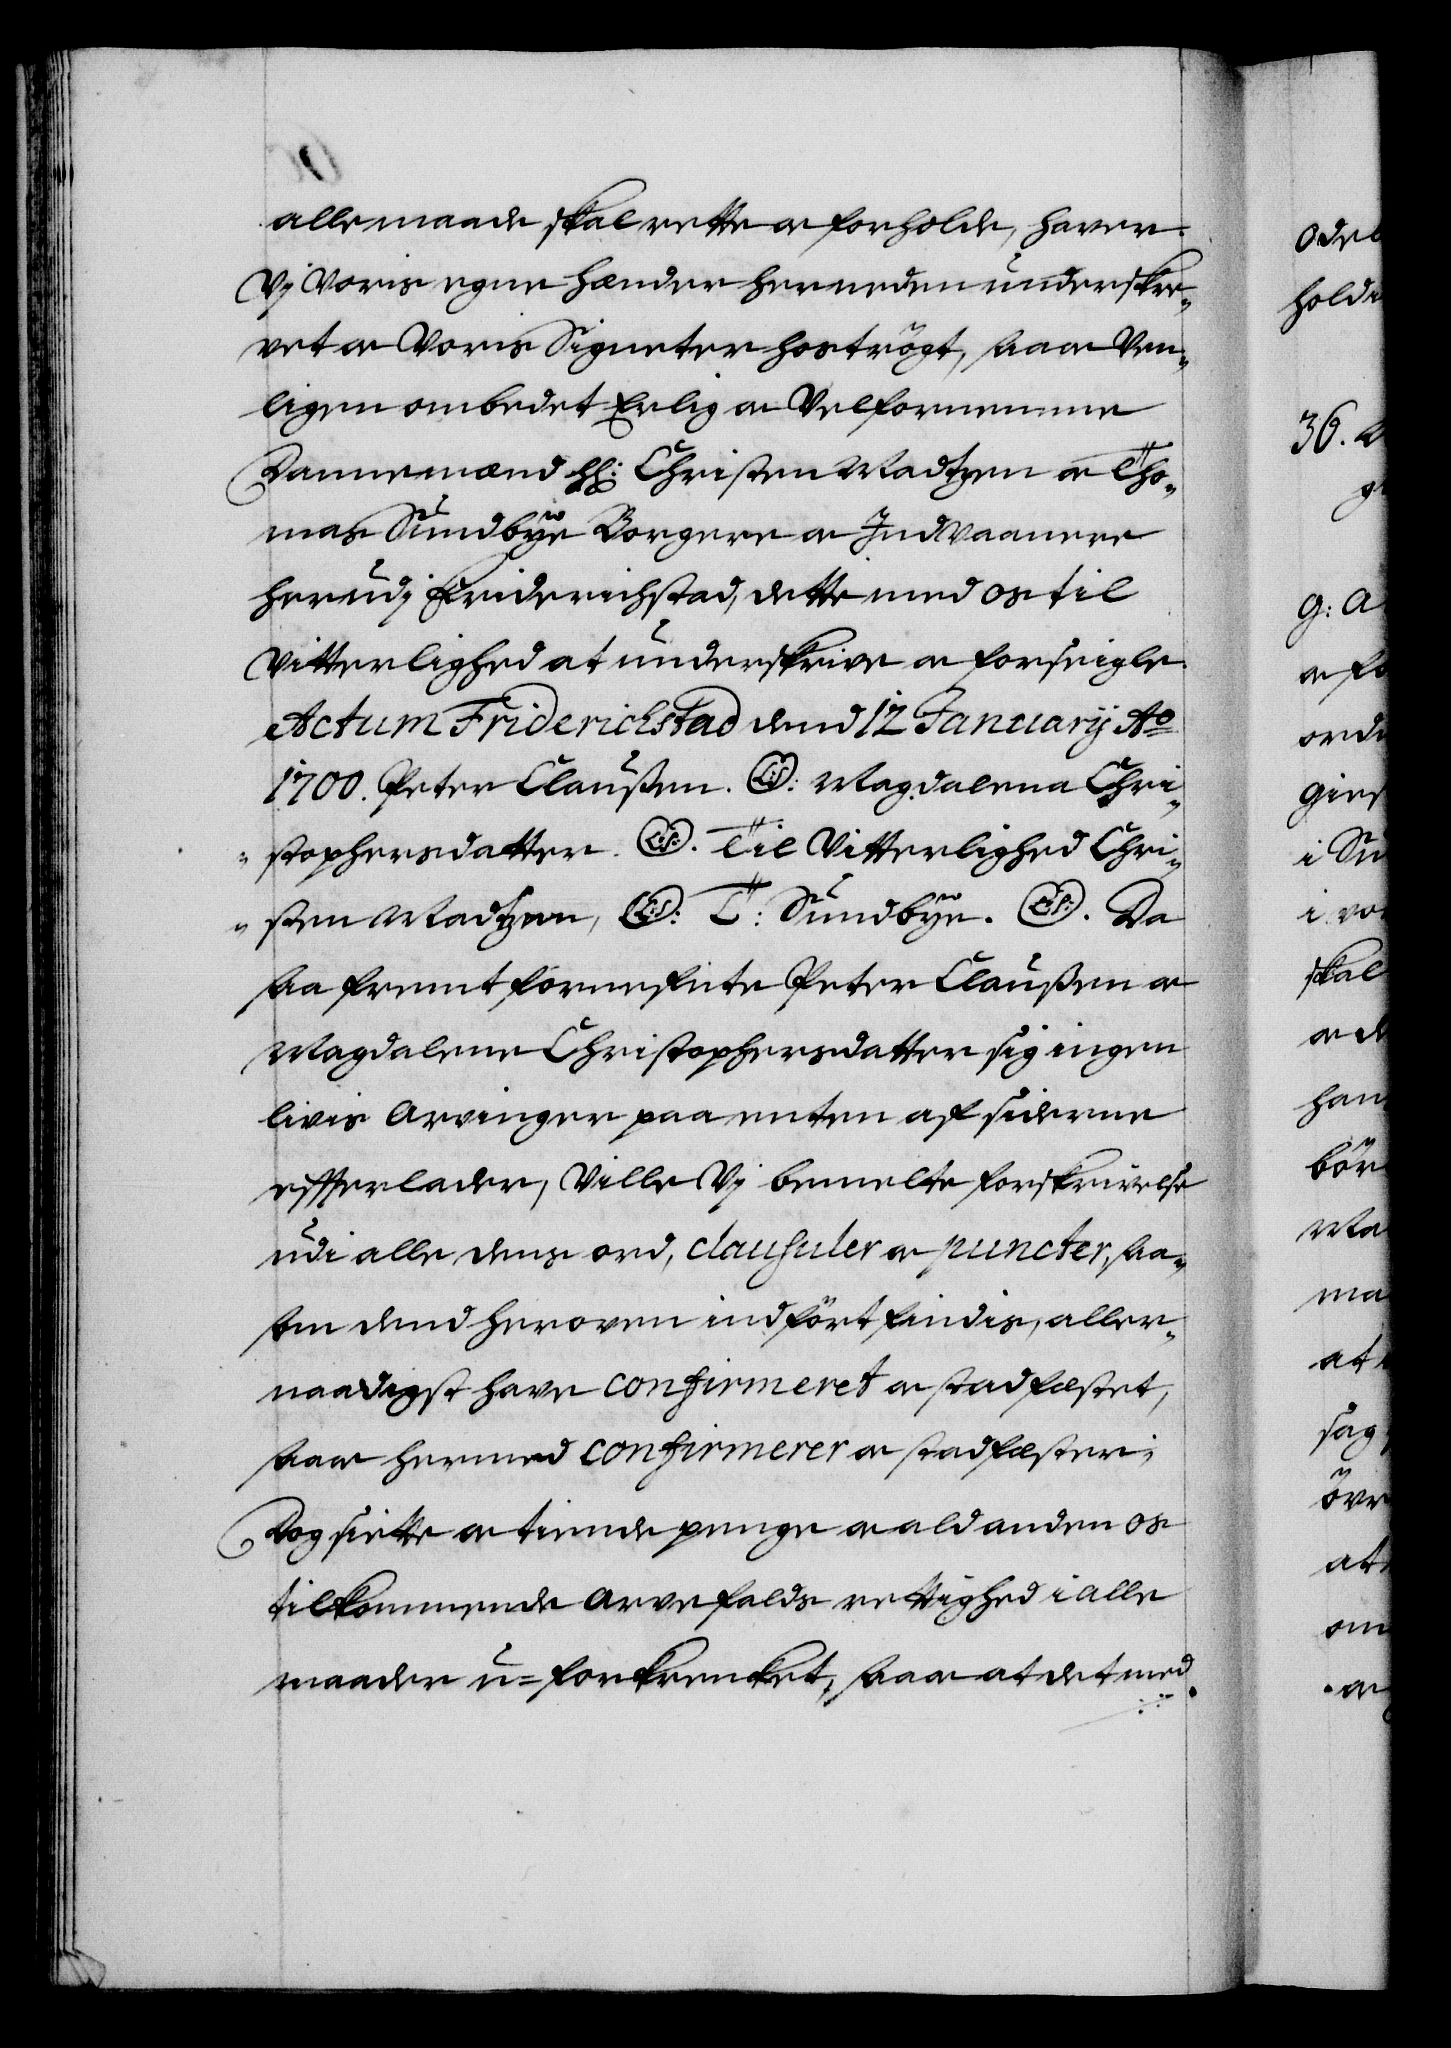 alle maade skal rette og forholde, haver
Vj Voris egne hænder herneden underskre-
vet og Voris Signeter hoströgt, saa og Ven-
ligen ombedet Erlig og Velfornemme
Dannemænd Christen Madtzen og Tho-
mas Sundbÿe Borgere og Indvaanere
herudj Friderichstad, dette med os til
Vitterlighed at underskrive og forseigle
Actum Friderichstad dend 12 Januarij Ao
1700. Peter Claußen. L.S: Magdalena Chri-
stophersdatter. L.S. Til Vitterlighed Chri-
sten Madtzen, L.S: T: Sundbÿe. L.S. Da
saafremt formelte Peter Claußen og
Magdalene Christophersdatter sig ingen
livis Arvinger paa enten af siderne
efterlader, Ville Vj bemelte forskrivelse
udi alle dens ord, clausuler og puncter, saa-
som dend heroven indfört findis, aller-
naadigst have confirmeret og stadfæstet,
saa og hermed confirmerer og stadfæster;
Dog siette og tiende penge og ald anden os
tilkommende Arvefalds rettighed i alle
maader u-forkrencket, saa og at det med
odel
holde
36.
g: A
og fo
ord
gies
i Su
i vo
skal
og d
han
bör
Ma
ma
at
sag
övr
at
om
og